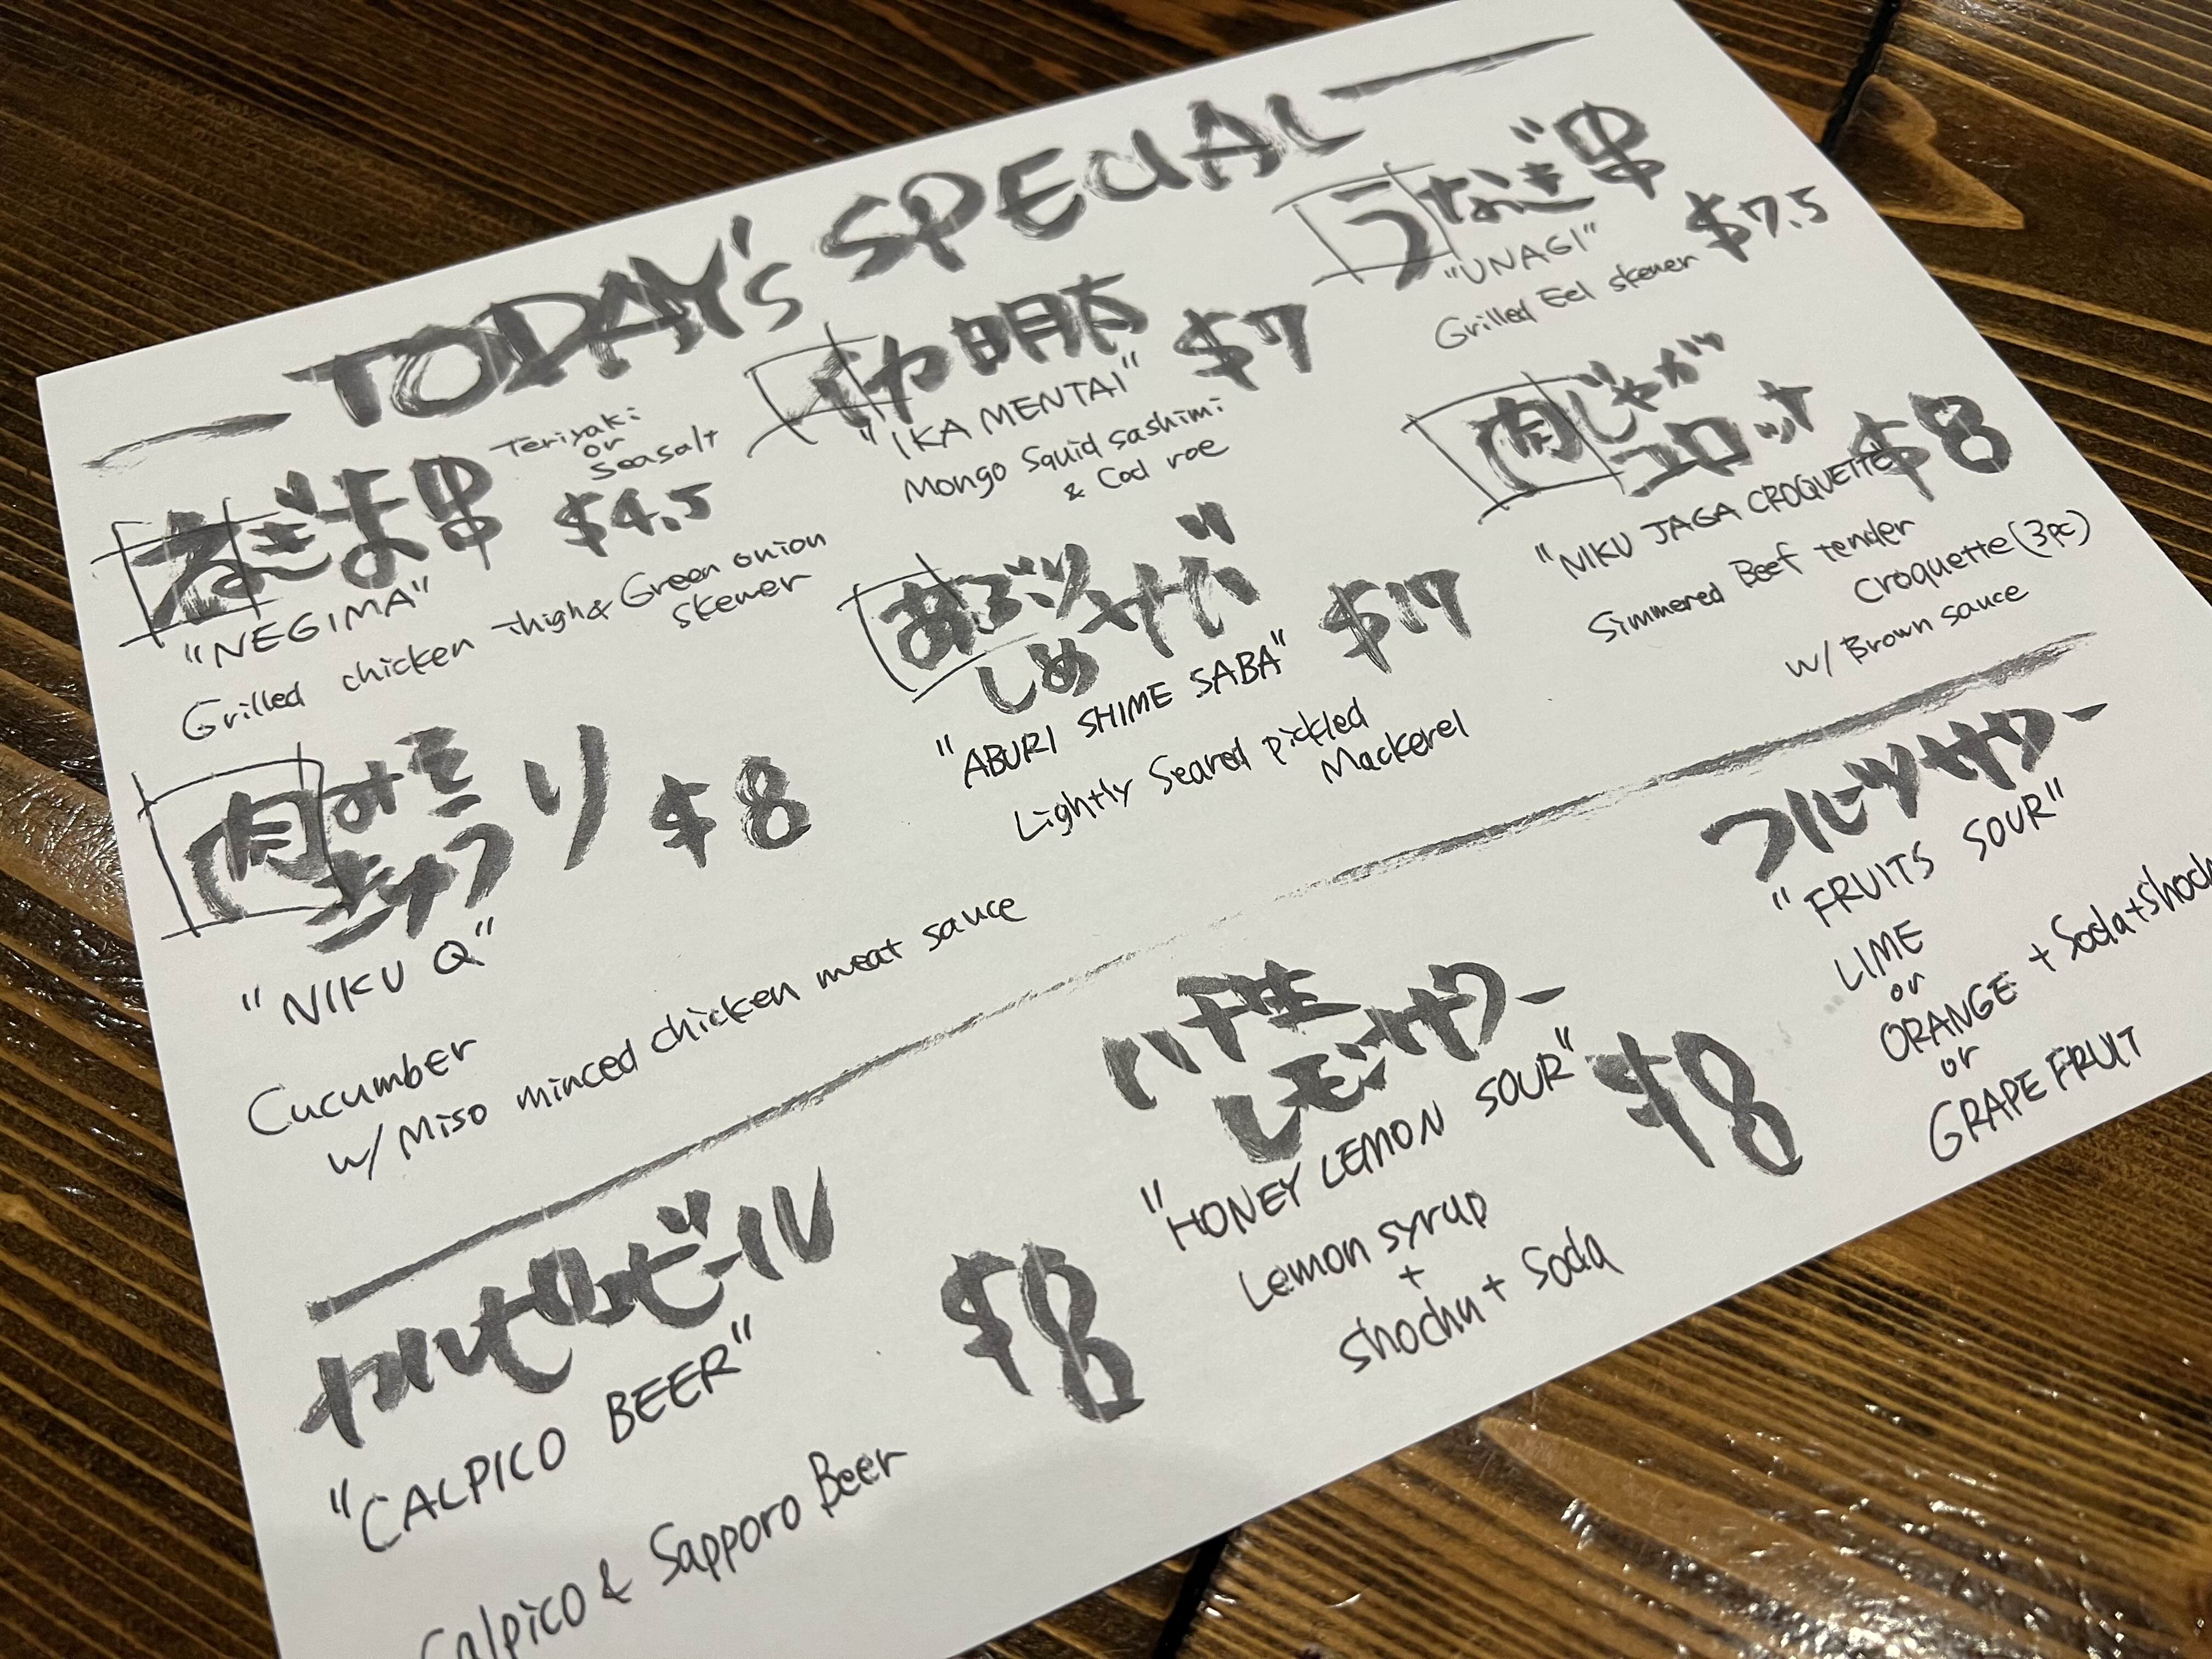 TODAY's SPECIAL
ねぎま串
Teriyaki
or
Seasalt
$4.5
"NEGIMA"
Grilled chicken thigh & Green onion
Skewer
肉みそ
キュウリ $8
"NIKU Q"
Cucumber
w/ Miso minced chicken meat sauce
イカ明太 $7
"IKA MENTAI"
Mongo Squid sashimi
& Cod roe
あぶり
しめサバ $17
"ABURI SHIME SABA"
Lightly Seared pickled
Mackerel
うなぎ串
"UNAGI" $7.5
Grilled Eel skewer
肉じゃが
コロッケ $8
"NIKU JAGA CROQUETTE"
Simmered Beef tender
Croquette (3pc)
w/ Brown sauce
カルピスビール
"CALPICO BEER" $8
Calpico & Sapporo Beer
ハチ生
レモンサワー
"HONEY LEMON SOUR" $8
Lemon syrup
+
shochu + Soda
フルーツサワー
"FRUITS SOUR"
LIME
or
ORANGE + Soda +
or
GRAPE FRUIT